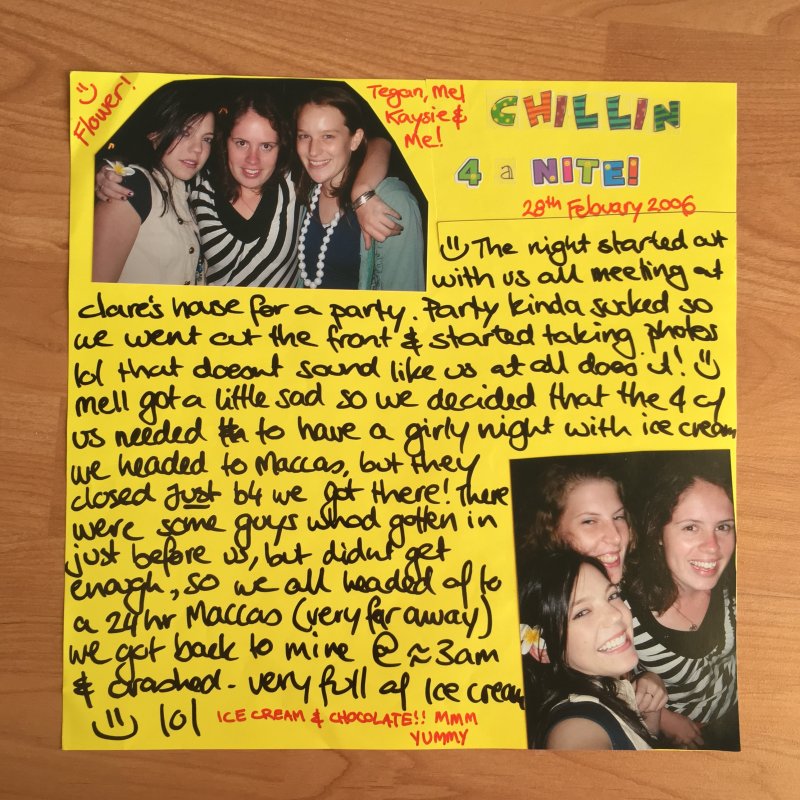 Flower!
Tegan, Mel
Kaysie &
Me!
CHILLIN
4 a NITE!
28th Febuary 2006
The night started out
with us all meeting at
Clare's house for a party. Party kinda sucked so
we went out the front & started taking photos
lol that doesnt sound like us at all does it!
Mell got a little sad so we decided that the 4 of
us needed to have a girly night with ice cream
we headed to Maccas, but they
closed just b4 we got there! There
were some guys whod gotten in
just before us, but didnt get
enough, so we all headed of to
a 24hr Maccas (very far away)
we got back to mine @ ≈ 3am
& crashed - very full of Ice cream
lol
ICE CREAM & CHOCOLATE!! MMM
YUMMY